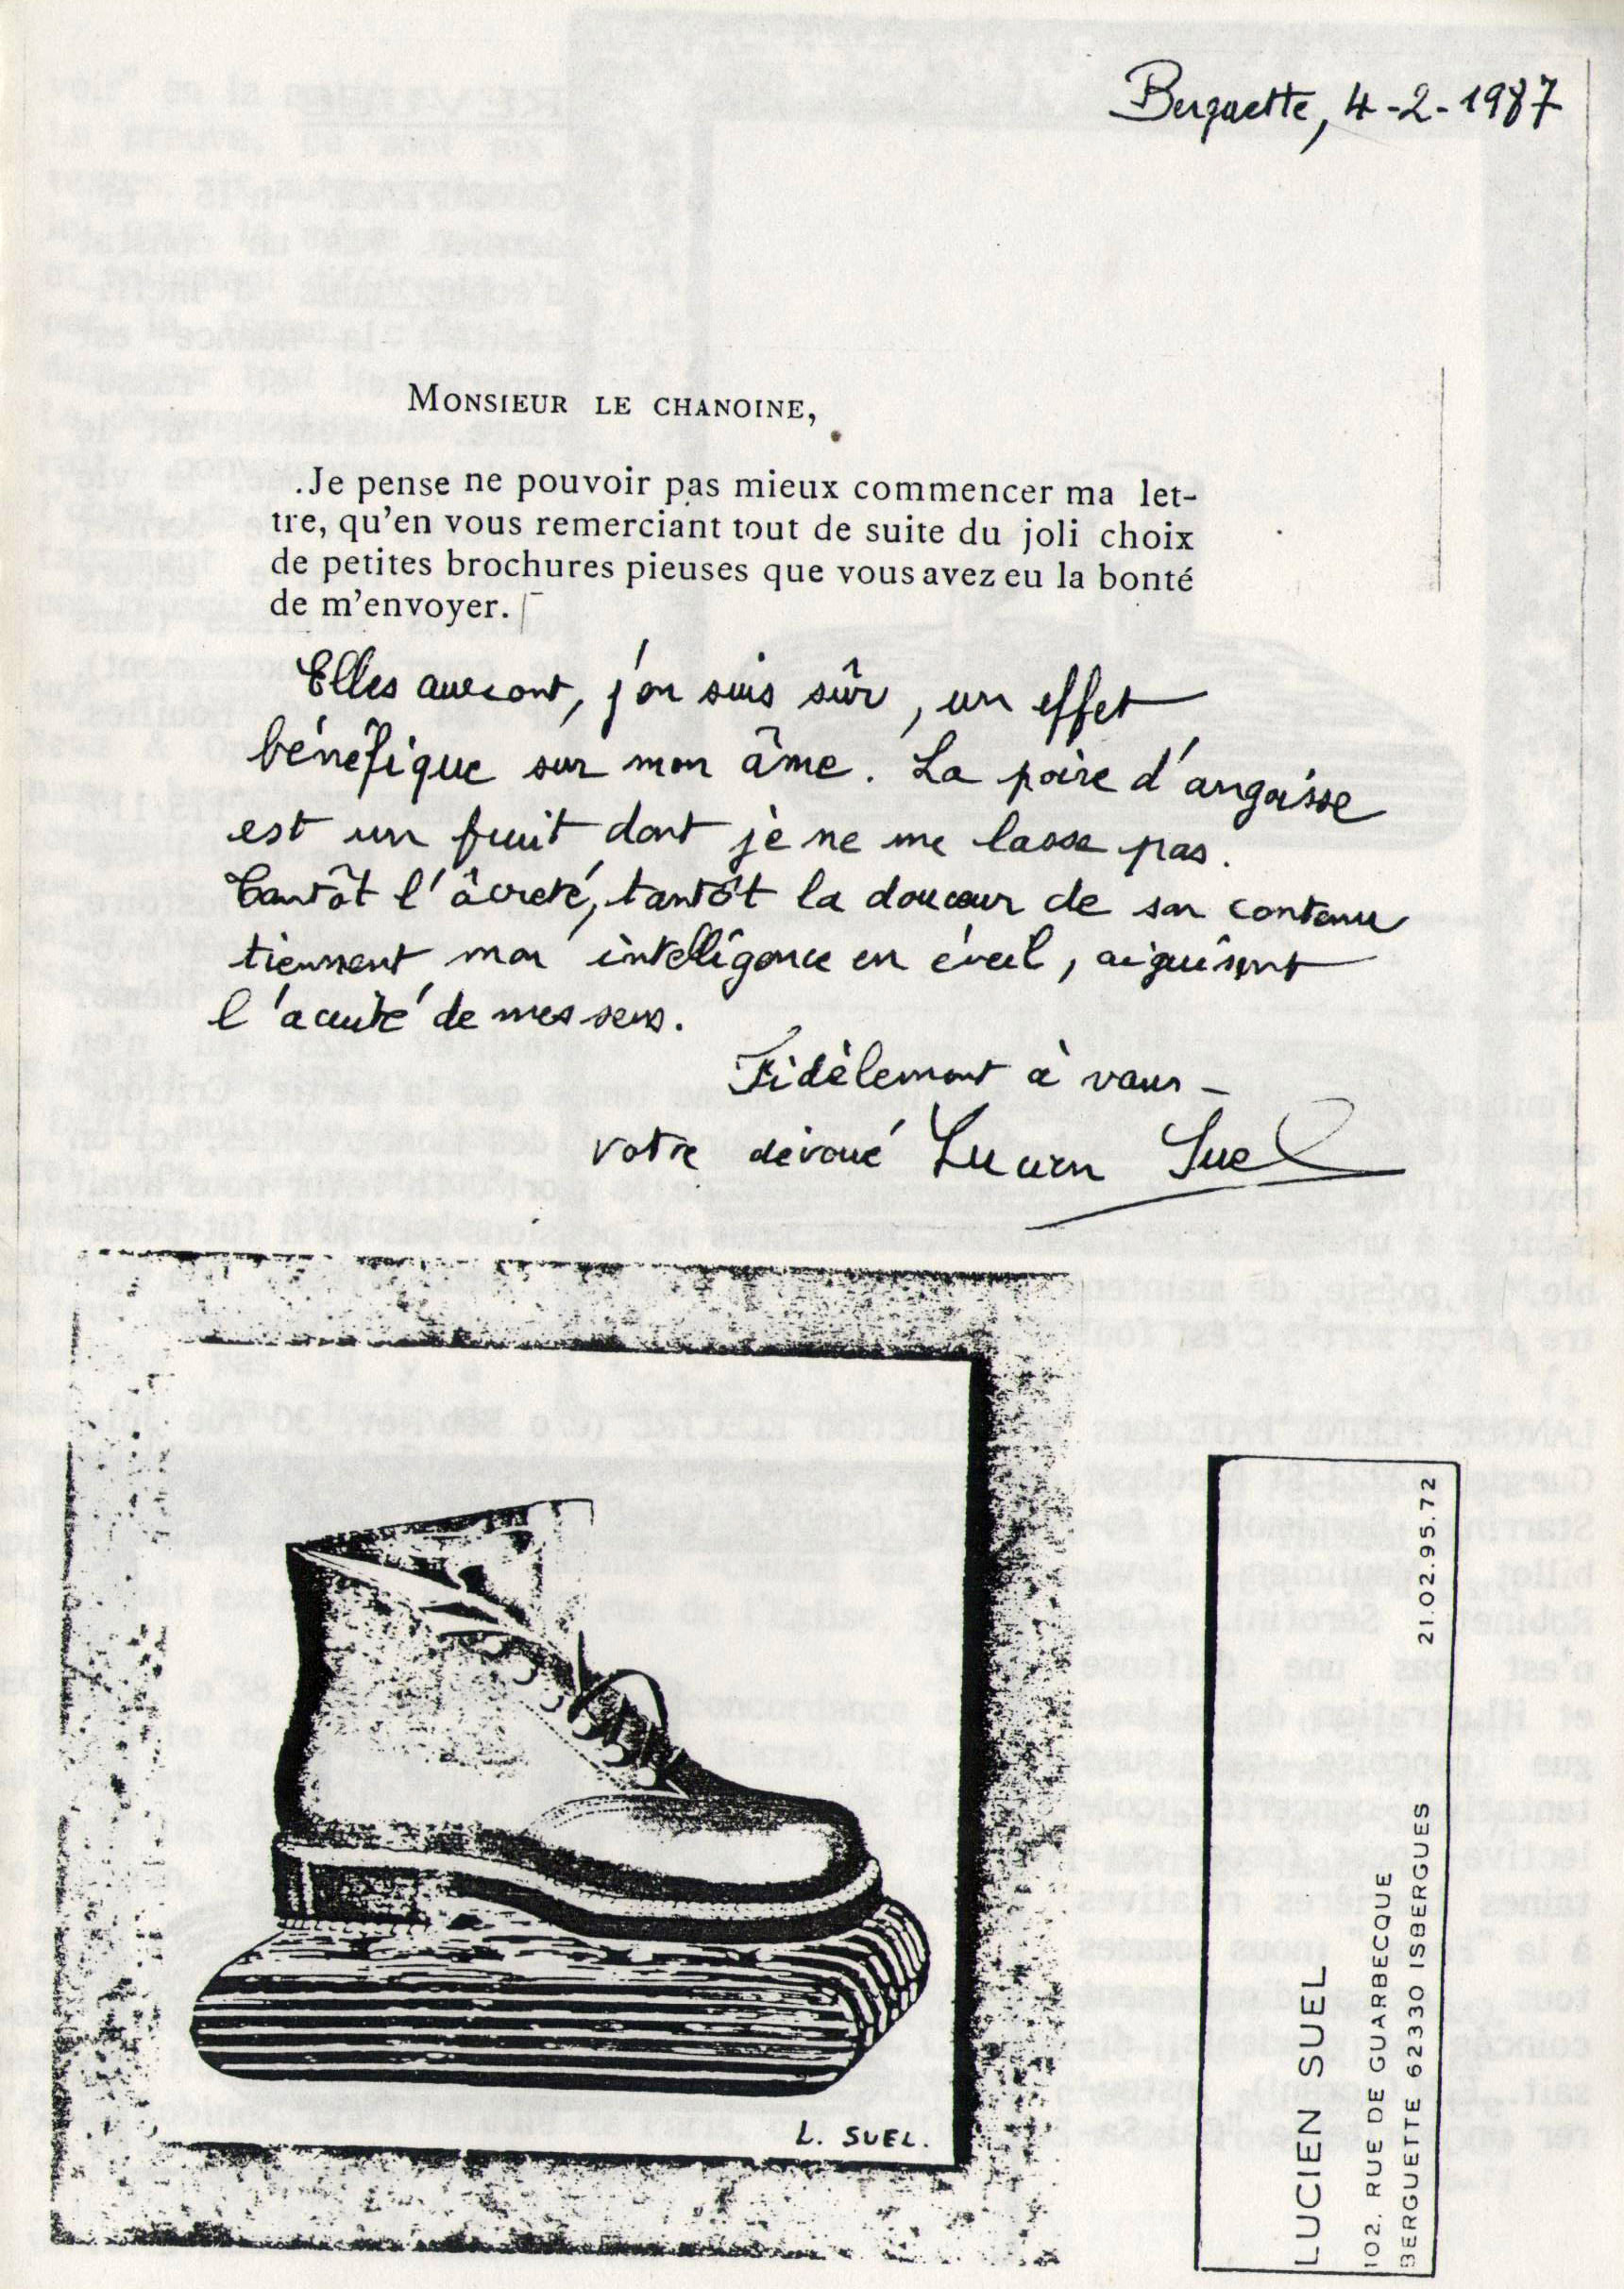 Berguette, 4-2-1987
MONSIEUR LE CHANOINE,
.Je pense ne pouvoir pas mieux commencer ma let-
tre, qu'en vous remerciant tout de suite du joli choix
de petites brochures pieuses que vous avez eu la bonté
de m'envoyer.
Elles auront, j'en suis sûr, un effet
bénéfique sur mon âme. La poire d'angoisse
est un fruit dont je ne me lasse pas.
Tantôt l'âcreté, tantôt la douceur de son contenu
tiennent mon intelligence en éveil, aiguisent
l'acuité de mes sens.
Fidèlement à vous -
votre dévoué Lucien Suel
L. SUEL.
LUCIEN SUEL
102. RUE DE GUARBECQUE
BERGUETTE 62330 ISBERGUES 21.02.95.72